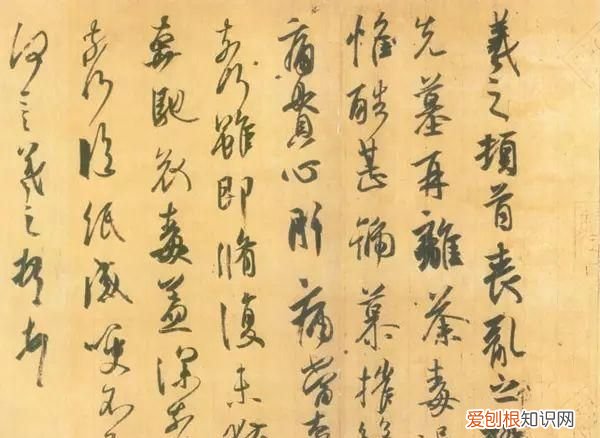 羲之頓首喪亂之極
先墓再離荼毒追
惟酷甚號慕摧絕
痛貫心肝痛當奈
奈何雖即脩復未獲
奔馳哀毒益深奈
奈何臨紙感哽不
何言羲之頓首
爱刨根知识网